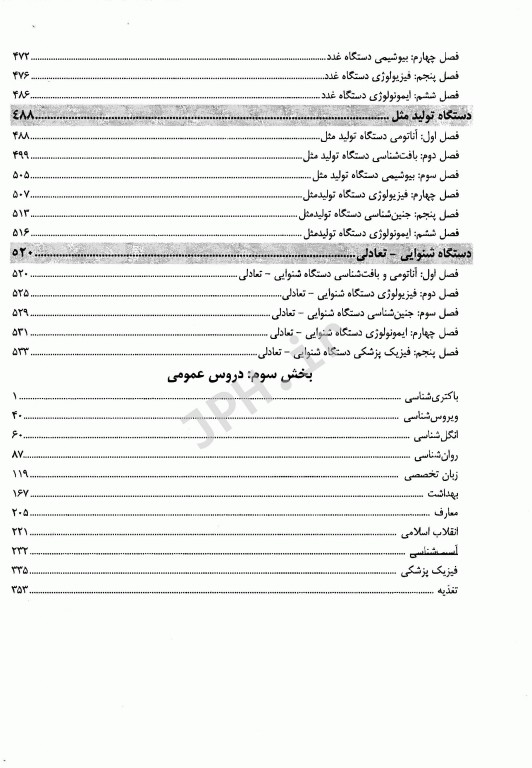 فصل چهارم: بیوشیمی دستگاه غدد ۴۷۲
فصل پنجم: فیزیولوژی دستگاه غدد ۴۷۶
فصل ششم: ایمونولوژی دستگاه غدد ۴۸۶
دستگاه تولید مثل ۴۸۸
فصل اول: آناتومی دستگاه تولید مثل ۴۸۸
فصل دوم: بافت‌شناسی دستگاه تولید مثل ۴۹۹
فصل سوم: بیوشیمی دستگاه تولید مثل ۵۰۵
فصل چهارم: فیزیولوژی دستگاه تولیدمثل ۵۰۷
فصل پنجم: جنین‌شناسی دستگاه تولیدمثل ۵۱۳
فصل ششم: ایمونولوژی دستگاه تولیدمثل ۵۱۶
دستگاه شنوایی - تعادلی ۵۲۰
فصل اول: آناتومی و بافت‌شناسی دستگاه شنوایی - تعادلی ۵۲۰
فصل دوم: فیزیولوژی دستگاه شنوایی - تعادلی ۵۲۵
فصل سوم: جنین‌شناسی دستگاه شنوایی - تعادلی ۵۲۹
فصل چهارم: ایمونولوژی دستگاه شنوایی - تعادلی ۵۳۱
فصل پنجم: فیزیک پزشکی دستگاه شنوایی - تعادلی ۵۳۳
بخش سوم: دروس عمومی
باکتری‌شناسی ۱
ویروس‌شناسی ۴۰
انگل‌شناسی ۶۰
روان‌شناسی ۸۷
زبان تخصصی ۱۱۹
بهداشت ۱۶۷
معارف ۲۰۵
انقلاب اسلامی ۲۲۱
آسیب‌شناسی ۲۳۲
فیزیک پزشکی ۳۳۵
تغذیه ۳۵۳
JPH.ir